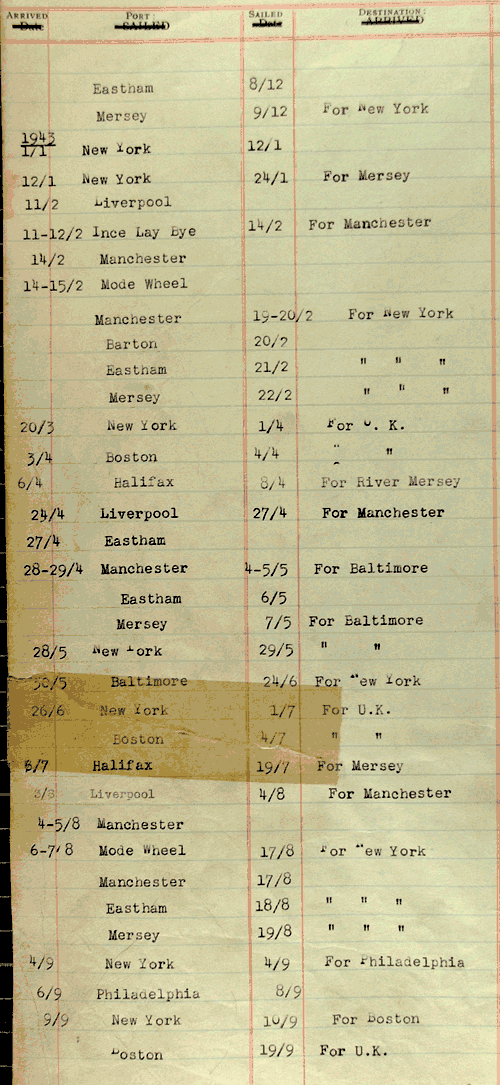 ARRIVED PORT: SAILED DESTINATION:
Date SAILED Date ARRIVED
Eastham 8/12
Mersey 9/12 For New York
1943
1/1 New York 12/1
12/1 New York 24/1 For Mersey
11/2 Liverpool
11-12/2 Ince Lay Bye 14/2 For Manchester
14/2 Manchester
14-15/2 Mode Wheel
Manchester 19-20/2 For New York
Barton 20/2
Eastham 21/2 " " "
Mersey 22/2 " " "
20/3 New York 1/4 For U. K.
3/4 Boston 4/4 " "
6/4 Halifax 8/4 For River Mersey
24/4 Liverpool 27/4 For Manchester
27/4 Eastham
28-29/4 Manchester 4-5/5 For Baltimore
Eastham 6/5
Mersey 7/5 For Baltimore
28/5 New York 29/5 " "
30/5 Baltimore 24/6 For New York
26/6 New York 1/7 For U.K.
Boston 4/7 " "
6/7 Halifax 19/7 For Mersey
3/8 Liverpool 4/8 For Manchester
4-5/8 Manchester
6-7/8 Mode Wheel 17/8 For New York
Manchester 17/8
Eastham 18/8 " " "
Mersey 19/8 " " "
4/9 New York 4/9 For Philadelphia
6/9 Philadelphia 8/9
9/9 New York 10/9 For Boston
Boston 19/9 For U.K.